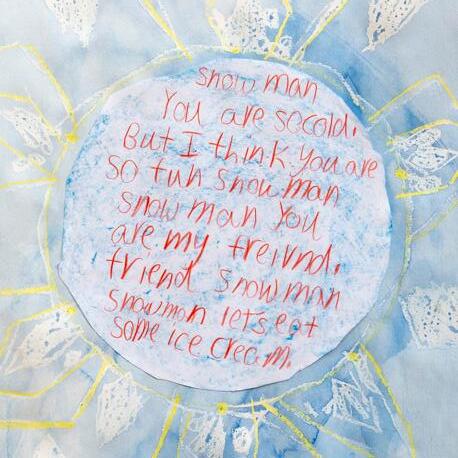 snow man
You are socold.
But I think you are
so fun snow man
snow man you
are my freivnd.
friend snowman
snowman lets eat
some ice cream.